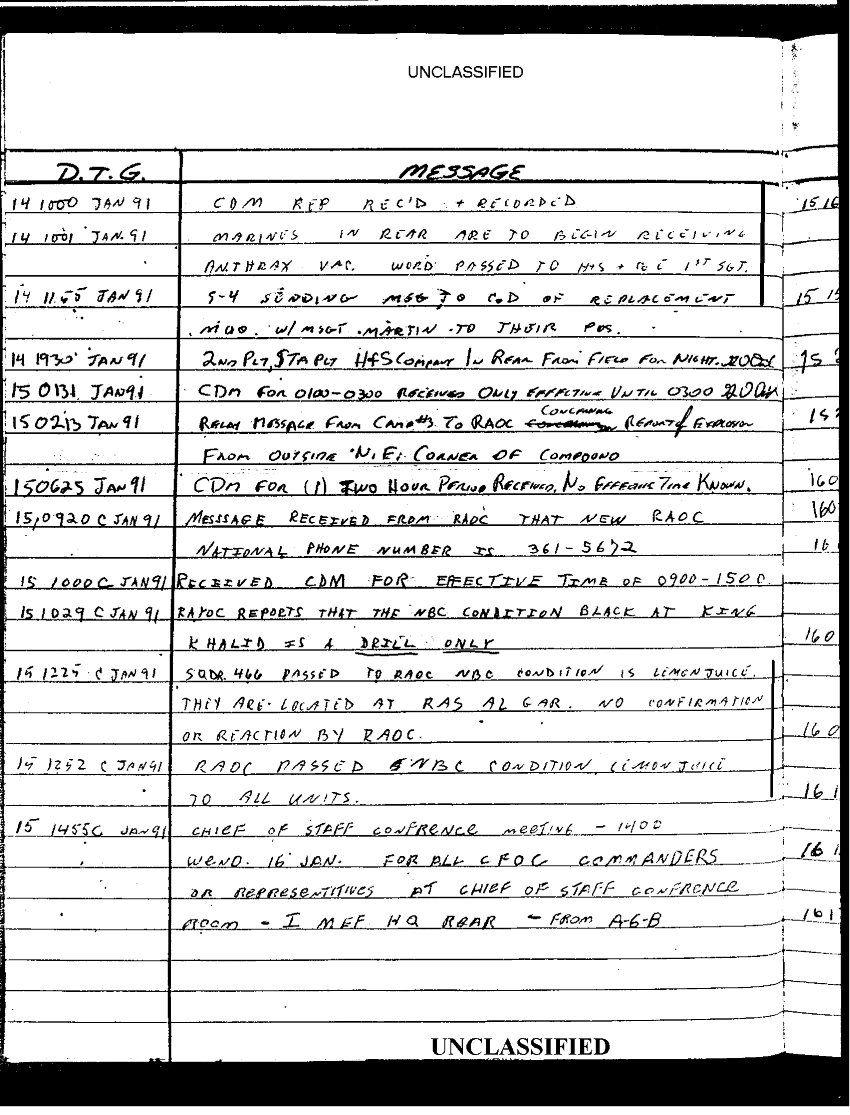 UNCLASSIFIED
D.T.G. MESSAGE
14 1000 JAN 91 CDM REP REC'D + RECORDED
14 1001 JAN. 91 MARINES IN REAR ARE TO BEGIN RECEIVING
ANTHRAX VAC. WORD PASSED TO H+S + 1ST SGT.
14 1155 JAN 91 S-4 SENDING MSG TO OF REPLACEMENT
W/ MSGT. MARTIN TO THEIR POS.
14 1930 JAN 91 2ND PLT, STA PLT H&S COMPANY IN REAR FROM FIELD FOR NIGHT.
15 0131 JAN 91 CDM FOR 0100-0300 RECEIVED ONLY EFFECTIVE UNTIL 0300
15 0213 JAN 91 RELAY MESSAGE FROM CAMP#3 TO RAOC CONCERNING REPORT OF EXPLOSION
FROM OUTSIDE N.E. CORNER OF COMPOUND
150625 JAN 91 CDM FOR (1) TWO HOUR PERIOD RECEIVED, NO EFFECTIVE TIME KNOWN.
15,0920 C JAN 91 MESSSAGE RECEIVED FROM RAOC THAT NEW RAOC
NATIONAL PHONE NUMBER IS 361-5672
15 1000 C JAN 91 RECEIVED CDM FOR EFFECTIVE TIME OF 0900-1500
15 1029 C JAN 91 REPORTS THAT THE NBC CONDITION BLACK AT KING
KHALID IS A DRILL ONLY
15 1225 C JAN 91 SQDR. 466 PASSED TO RAOC NBC CONDITION IS LEMON JUICE.
THEY ARE LOCATED AT RAS AL GAR. NO CONFIRMATION
OR REACTION BY RAOC.
15 1252 C JAN 91 RAOC PASSED NBC CONDITION LEMON JUICE
TO ALL UNITS.
15 1455C JAN 91 CHIEF OF STAFF CONFRENCE MEETING - 1400
WEND. 16 JAN. FOR ALL CFOC COMMANDERS
OR REPRESENTITIVES AT CHIEF OF STAFF CONFRENCE
ROOM - I MEF HQ REAR - FROM A-6-B
UNCLASSIFIED